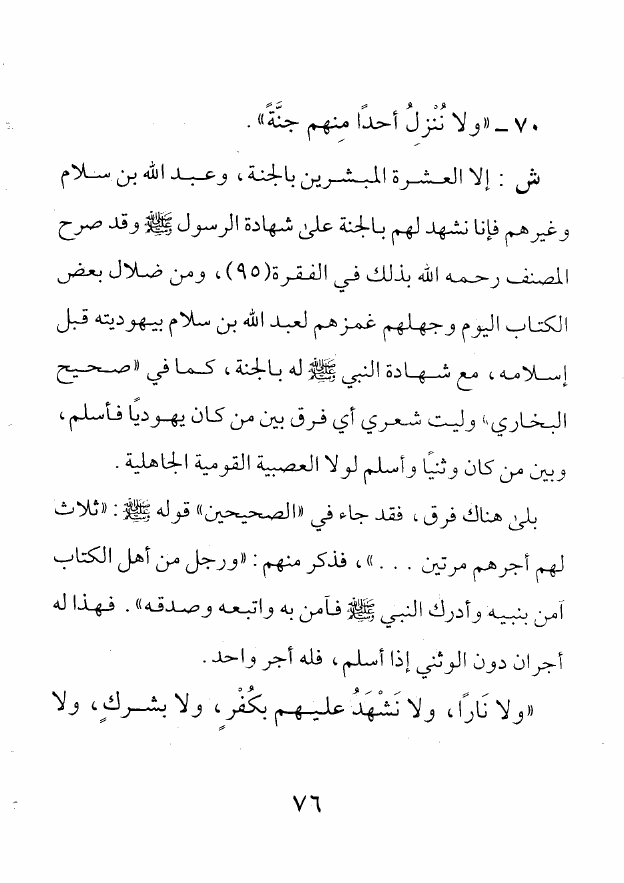 ٧٠ ــ «ولا نُنْزِلُ أحدًا مِنهم جنَّةً».
ش : إلا العشرة المبشرين بالجنة، وعبد الله بن سلام
وغيرهم فإنا نشهد لهم بالجنة على شهادة الرسول ﷺ وقد صرح
المصنف رحمه الله بذلك في الفقرة(٩٥)، ومن ضلال بعض
الكتاب اليوم وجهلهم غمزهم لعبد الله بن سلام بيهوديته قبل
إسلامه، مع شهادة النبي ﷺ له بالجنة، كما في «صحيح
البخاري» وليت شعري أي فرق بين من كان يهوديًا فأسلم،
وبين من كان وثنيًا وأسلم لولا العصبية القومية الجاهلية.
بلى هناك فرق، فقد جاء في «الصحيحين» قوله ﷺ: «ثلاث
لهم أجرهم مرتين ...»، فذكر منهم: «ورجل من أهل الكتاب
آمن بنبيه وأدرك النبي ﷺ فآمن به واتبعه وصدقه». فهذا له
أجران دون الوثني إذا أسلم، فله أجر واحد.
«ولا نَارًا، ولا نَشْهَدُ عليهم بكُفْرٍ، ولا بشركٍ، ولا
٧٦